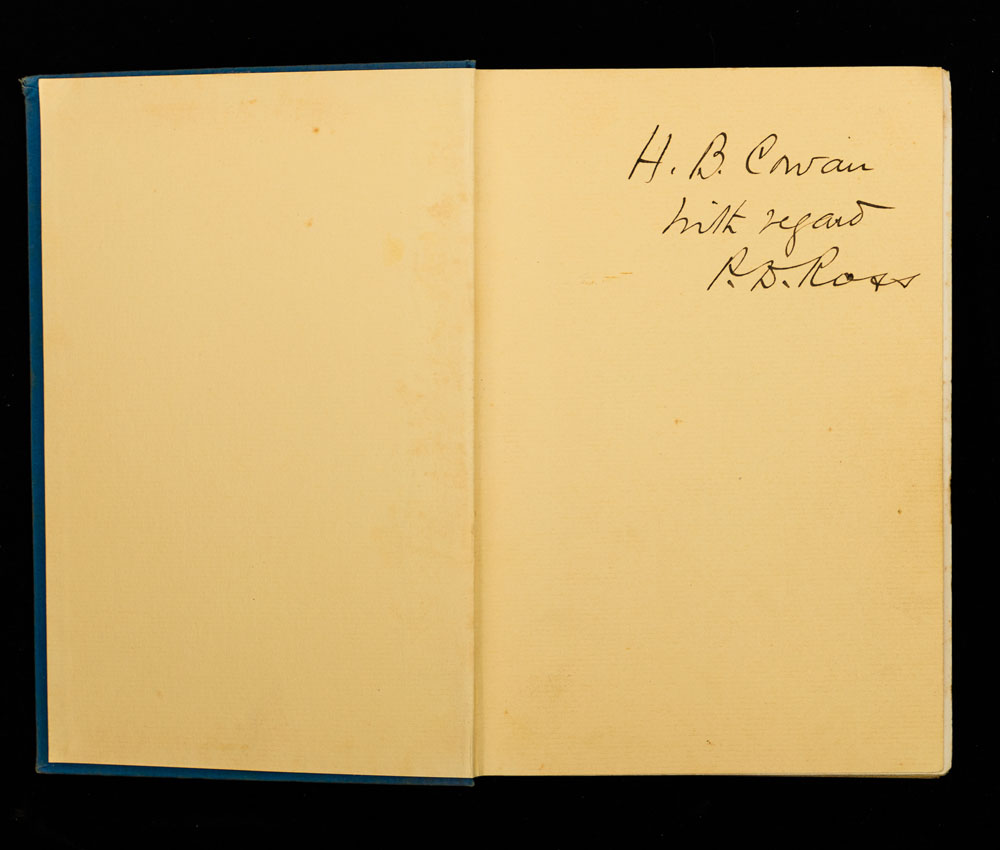 H. B. Cowan
With regard
P. D. Ross